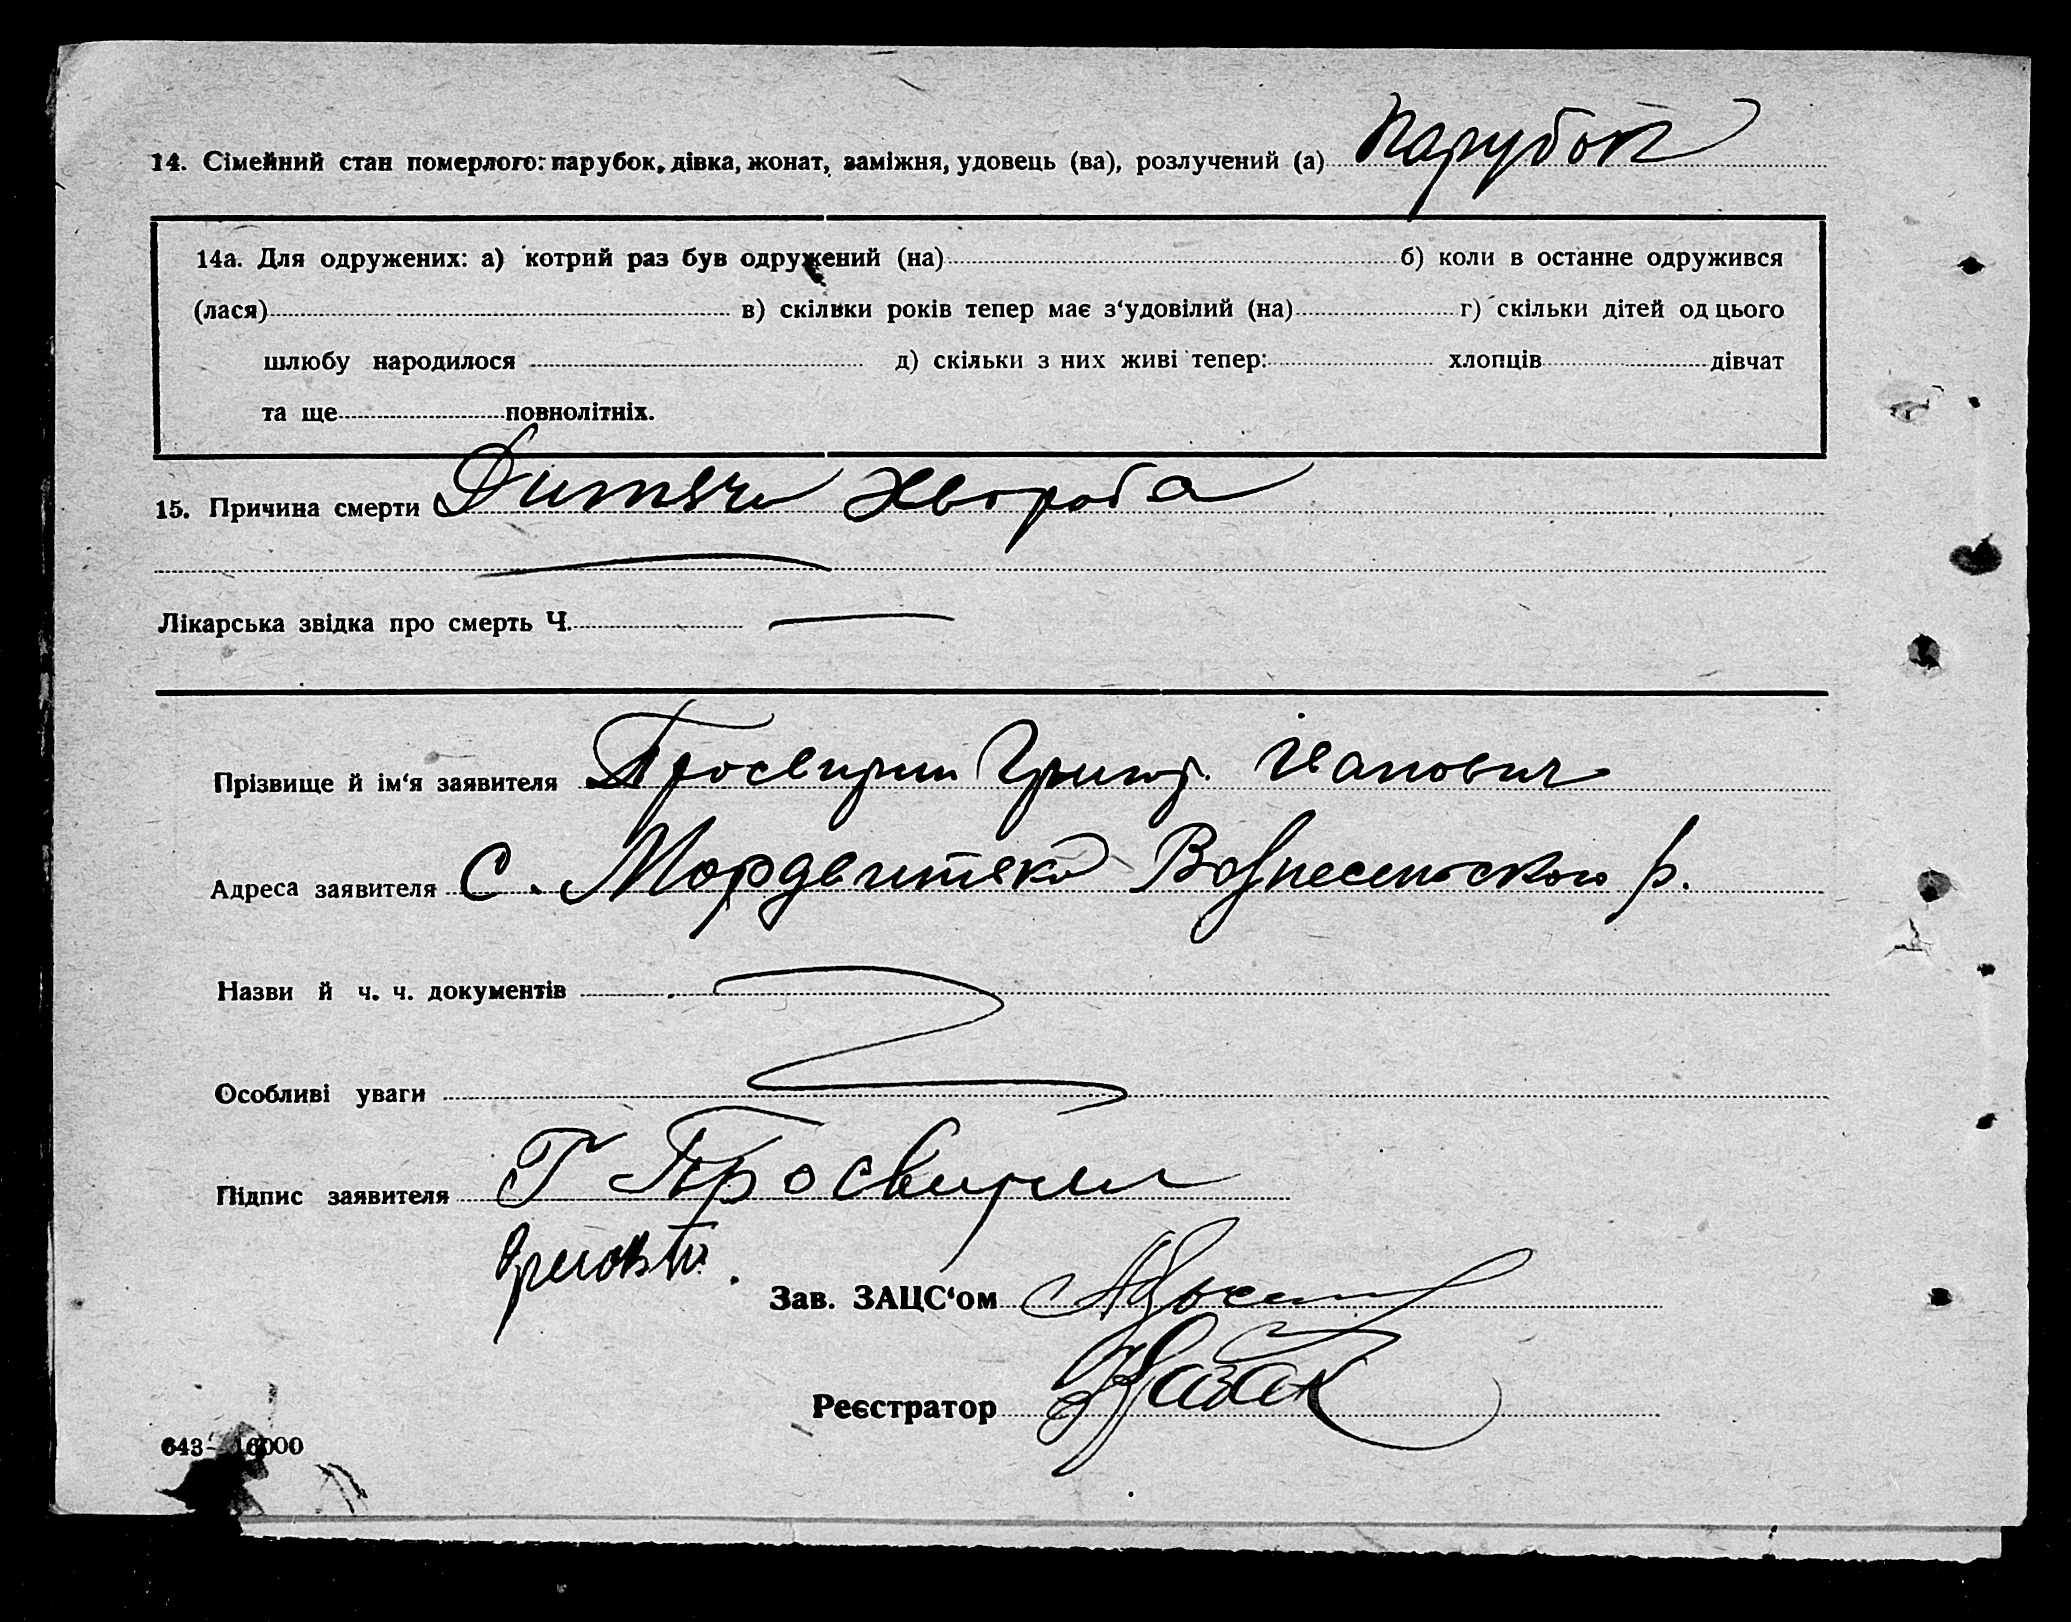 14. Сімейний стан померлого: парубок, дівка, жонат, заміжня, удовець (ва), розлучений (а) Парубок
14а. Для одружених: а) котрий раз був одружений (на) б) коли в останне одружився
(лася) в) скільки років тепер має з'удовілий (на) г) скільки дітей од цього
шлюбу народилося д) скільки з них живі тепер: хлопців дівчат
та ще повнолітніх.
15. Причина смерти Дитяча Хвороба
Лікарська звідка про смерть Ч.
Прізвище й ім'я заявителя Просвирин Григор. Іванович
Адреса заявителя с. Вознесенського р.
Назви й ч. ч. документів
Особливі уваги
Підпис заявителя Г Просвирин
Зав. ЗАЦС'ом
Реєстратор Казак
643 - 16000